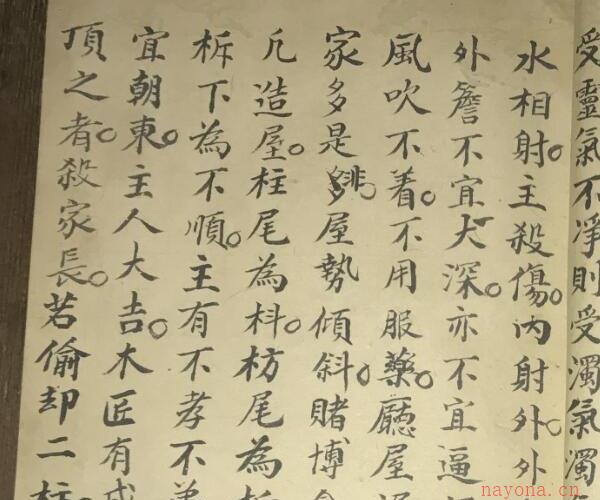 受靈氣不淨則受濁氣濁氣
水相射。主殺傷。內射外。外
外簷不宜大深。亦不宜逼
風吹不着。不用服藥。廳屋
家多是非屋勢傾斜。賭博
凡造屋。柱尾為枓。枋尾為
柝下為不順。主有不孝不
宜朝東。主人大吉。木匠有
頂之者。殺家長。若偷却二柱
nayona.cn